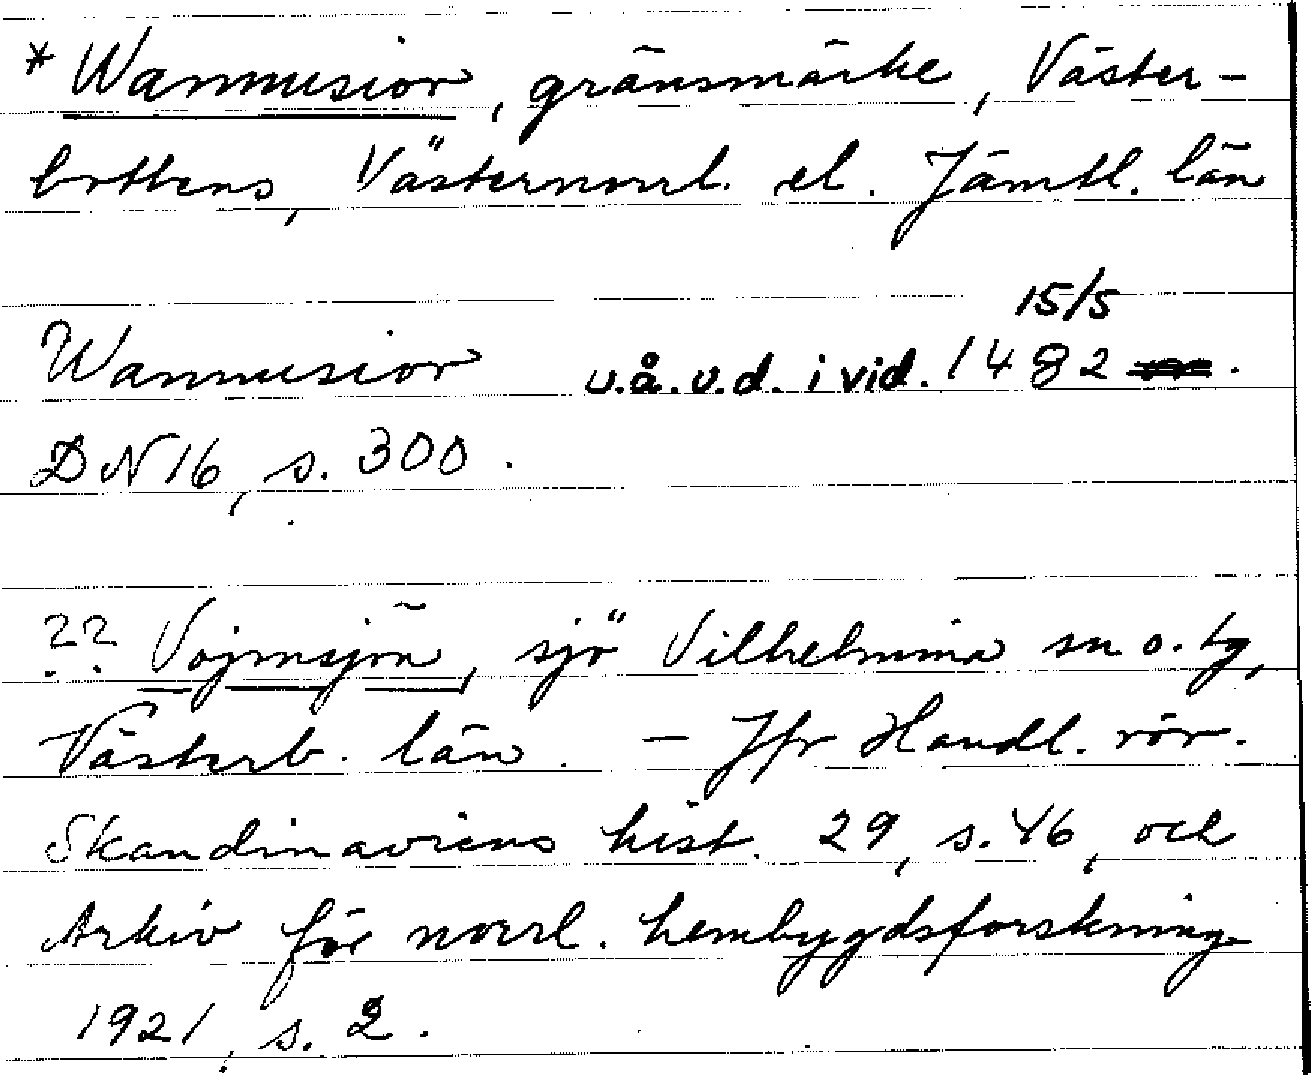 * Wanmusior, gränsmärke, Väster-
bottens, Västernorrl. el. Jämtl. län
15/5
Wanmusior u.å.u.d. i vid. 1482 .
DN 16, s. 300.
?? Vojmsjön, sjö Vilhelmina sn o. tg,
Västerb. län. - Jfr Handl. rör.
Skandinaviens hist. 29, s. 46, och
Arkiv för norrl. hembygdsforskning
1921, s. 2.